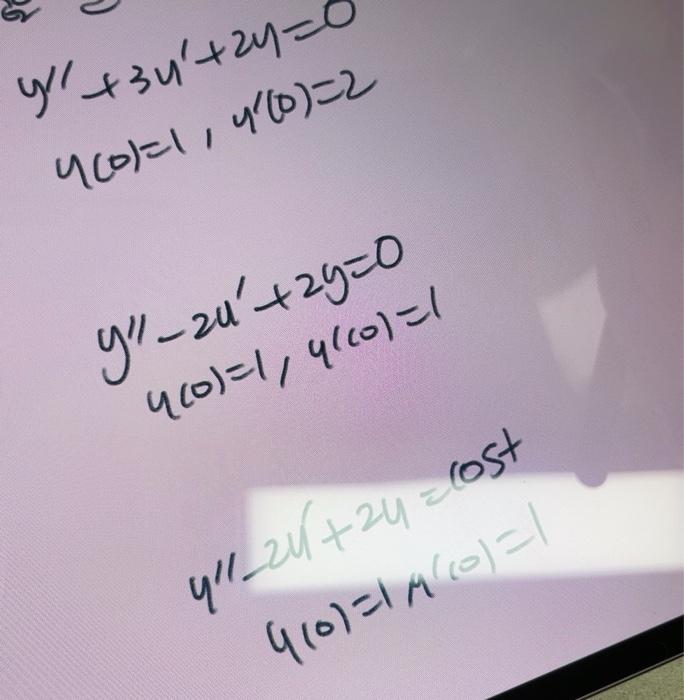 y'' + 3y' + 2y = 0
y(0) = 1, y'(0) = 2
y'' - 2y' + 2y = 0
y(0) = 1, y'(0) = 1
y'' - 2y' + 2y = cost
y(0) = 1 y'(0) = 1